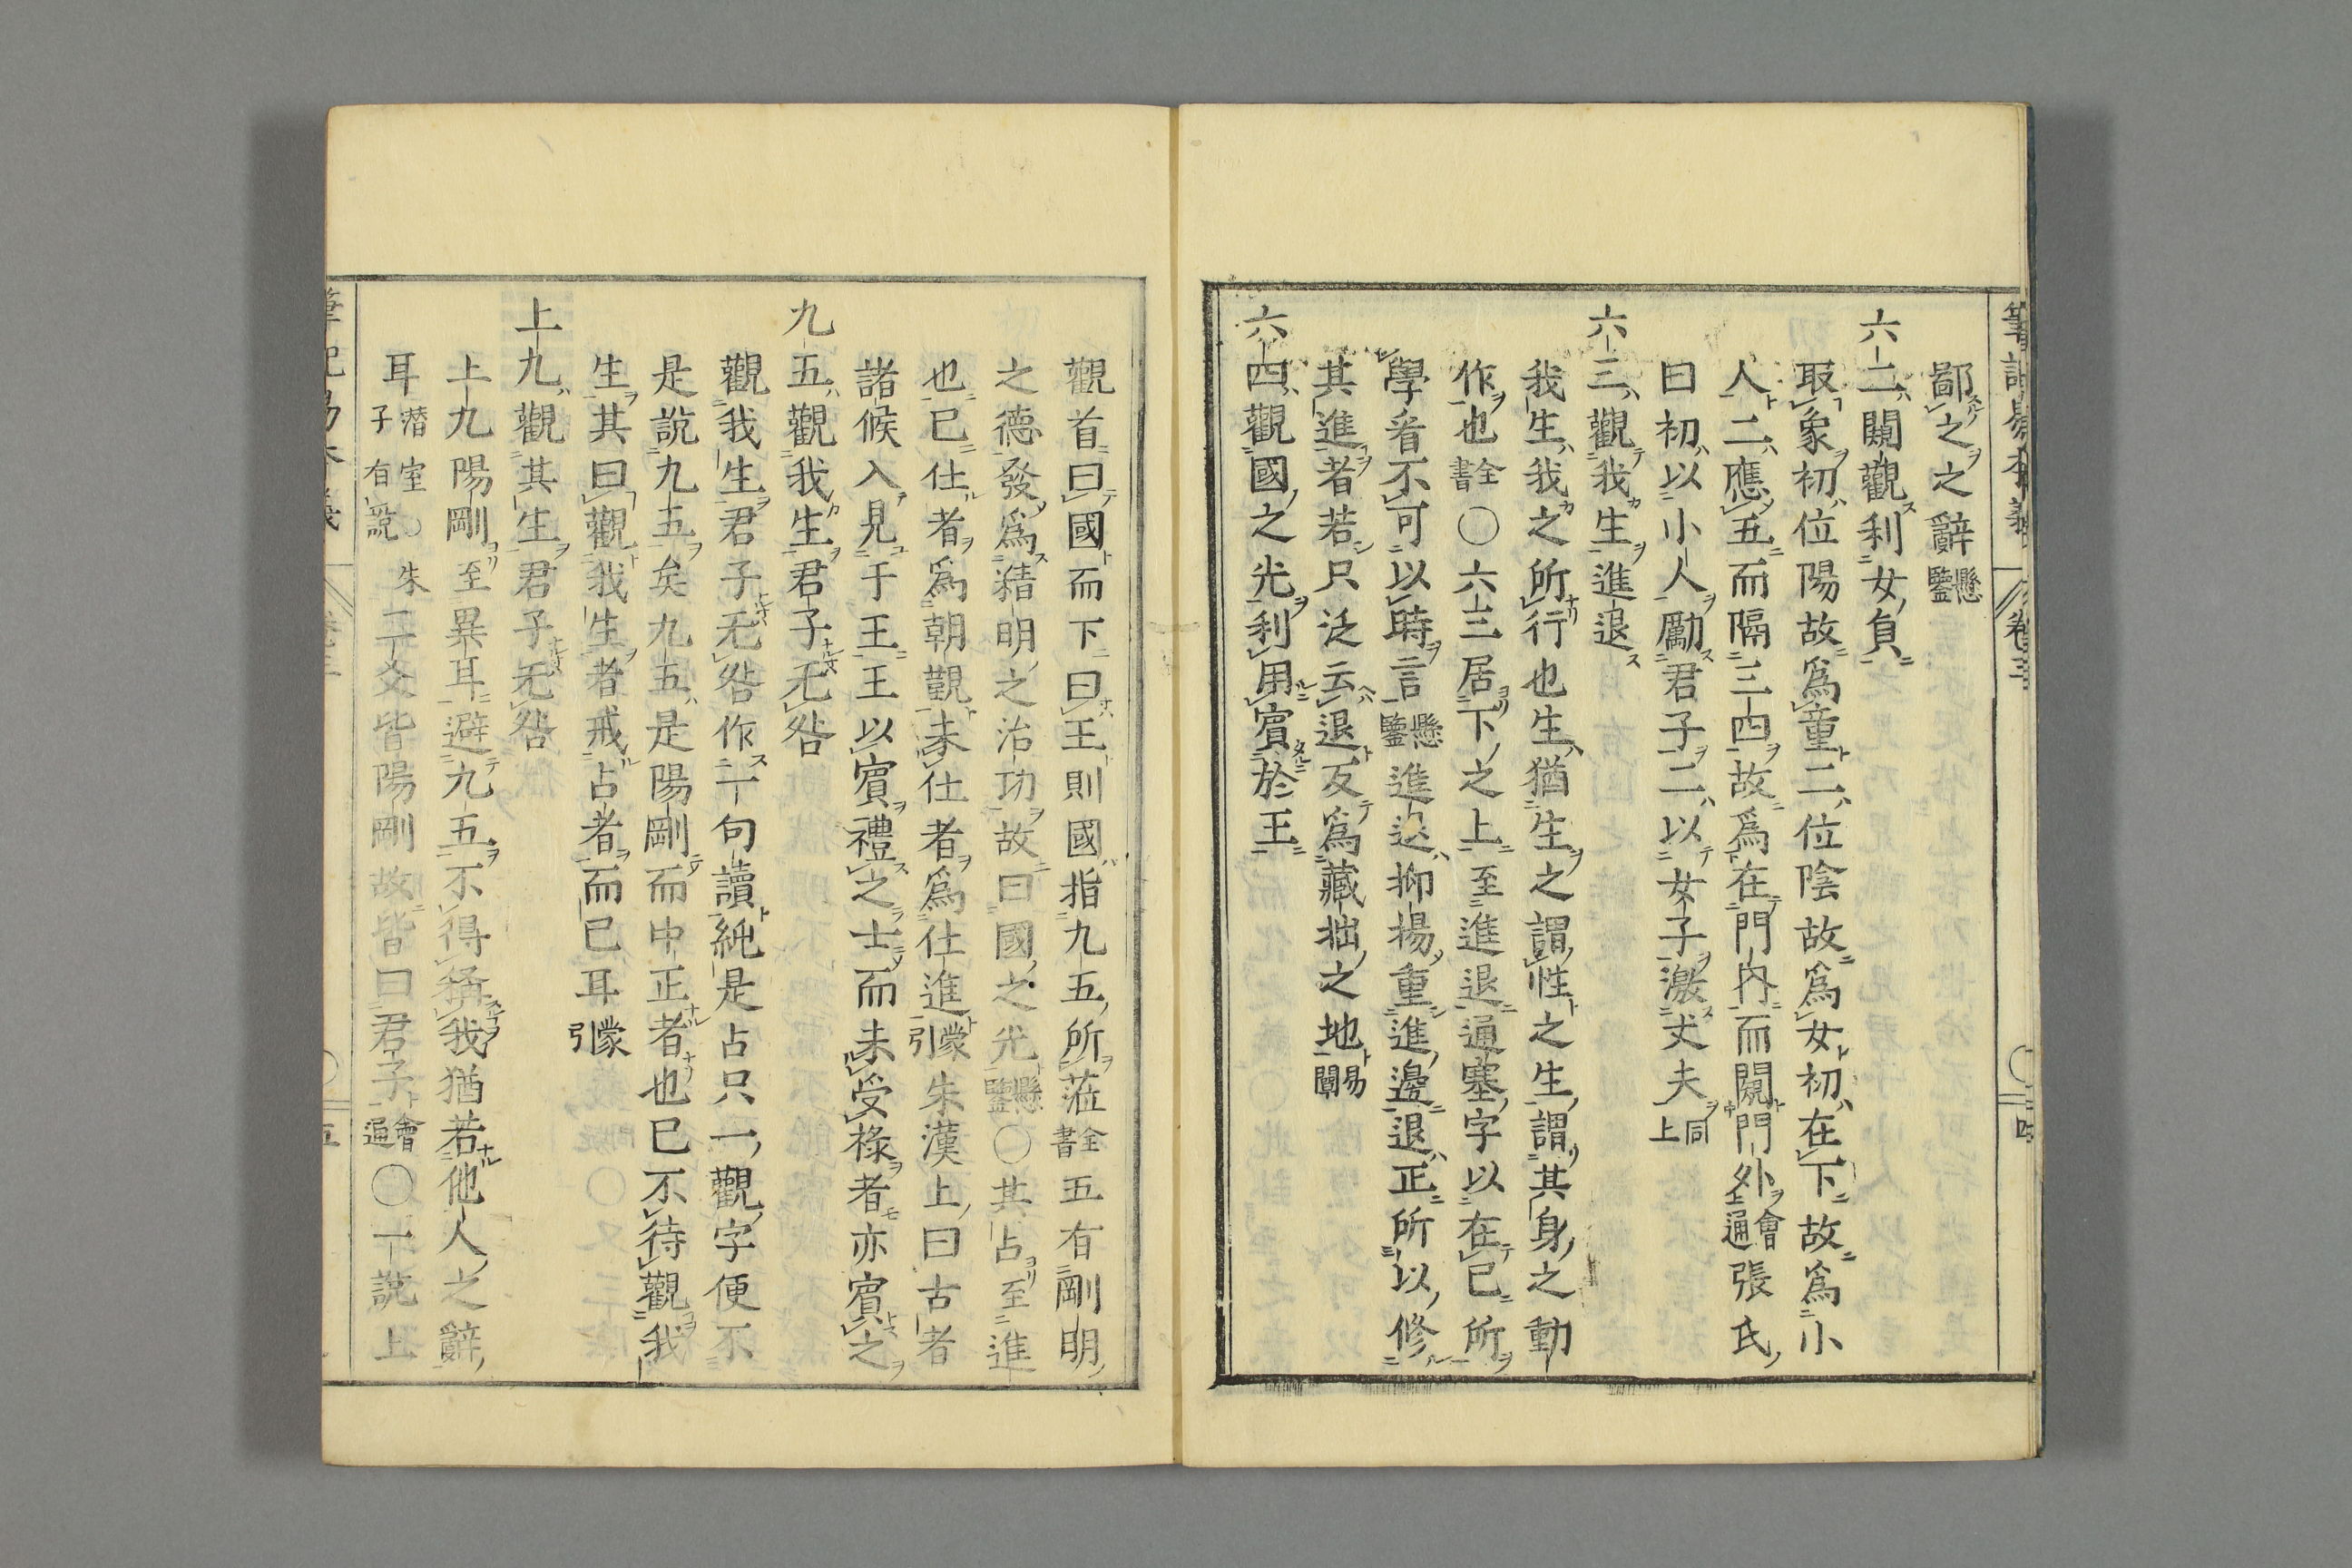 鄙之之辭懸鑒
六二闚觀利女貞
取象初位陽故爲童二位陰故爲女初在下故爲小
人二應五而隔三四故爲在門內而闚門外會通張氏
曰初以小人勵君子二以女子激丈夫同上
六三觀我生進退
我生我之所行也生猶生之謂性之生謂其身之動
作也全書〇六三居下之上至進退通塞字以在已所
學者不可以時言懸鑒進退抑揚重進邊退正所以修
其進者若只泛云退反爲藏拙之地易闡
六四觀國之光利用賓於王
觀首曰國而下曰王則國指九五所蒞全書五有剛明
之德發爲精明之治功故曰國之光懸鑒〇其占至進
也已仕者爲朝觀未仕者爲仕進蒙引朱漢上曰古者
諸候入見于王王以賓禮之士而未受祿者亦賓之
九五觀我生君子无咎
觀我生君子无咎作一句讀純是占只一觀字便不
是說九五矣九五是陽剛而中正者也已不待觀我
生其曰觀我生者戒占者而已耳蒙引
上九觀其生君子无咎
上九陽剛至異耳避九五不得稱我猶若他人之辭
耳潛室〇朱子有說二爻皆陽剛故皆曰君子會通〇一說上